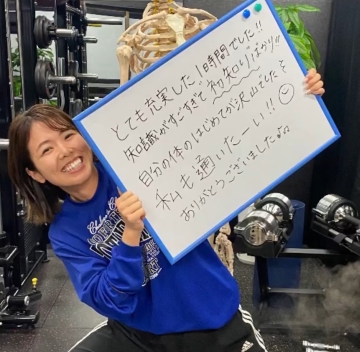 とても充実した1時間でした!!
知識がすごすぎて初知りばかり!!
自分の体のはじめてが沢山でした
私も通いたーい!!
ありがとうございました♪♪